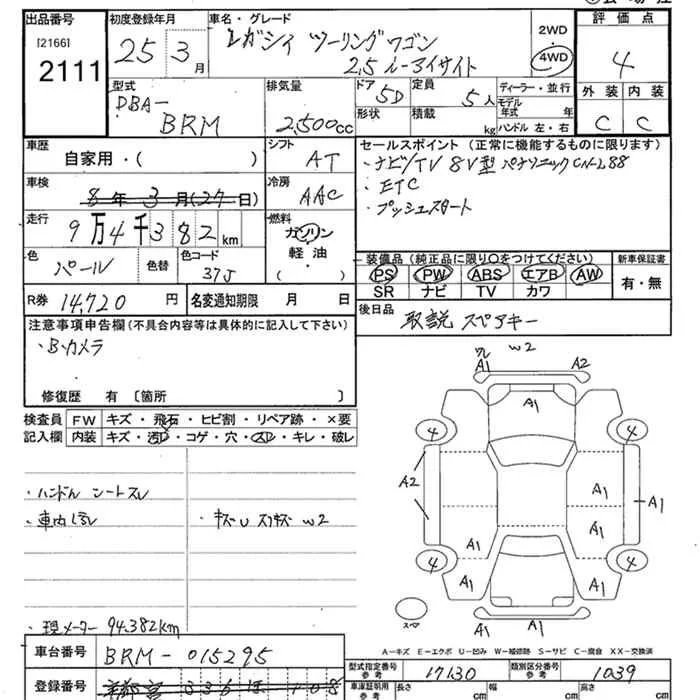 出品番号 初度登録年月 車名・グレード 評価点
[2166]
2111
25 3月
レガシィ ツーリングワゴン
2.5 i-アイサイト
2WD
4WD
4
型式 排気量 ドア 定員 ディーラー・並行 外装 内装
DBA-
BRM
2,500cc
5D
5人
モデル年式 年
形状 積載 kg ハンドル 左・右
C C
車歴 シフト セールスポイント (正常に機能するものに限ります)
自家用・( )
AT
・ナビ/TV 8V型 パナソニック CN-L88
・ETC
・プッシュスタート
車検 冷房
8年3月(27日)
AAC
走行 燃料
9万4千382km
ガソリン
軽油
( )
色 色替 色コード
パール
37J
装備品 (純正品に限り〇をつけてください) 新車保証書
PS PW ABS エアB AW
SR ナビ TV カワ
有・無
R券 14,720円 名変通知期限 月 日
後日品
取説 スペアキー
注意事項申告欄 (不具合内容等は具体的に記入して下さい)
・Bカメラ
修復歴 有 〔箇所 〕
検査員 FW キズ・飛石・ヒビ割・リペア跡・×要
記入欄 内装 キズ・汚レ・コゲ・穴・スレ・キレ・破レ
・ハンドル シートスレ
・車内汚レ
・キズU スリキズ W2
・現メーター 94,382km
A1 W2 A2
A1
4 4
A2
A1 A1
A1
A1 A1
4 4
A1 A1
A1 A1
スペア
A-キズ E-エクボ U-凹み W-補修跡 S-サビ C-腐食 XX-交換済
車台番号 BRM-015295
登録番号
型式指定番号 参考 17130 類別区分番号 参考 1039
車庫証明用 参考 長さ cm 幅 cm 高さ cm